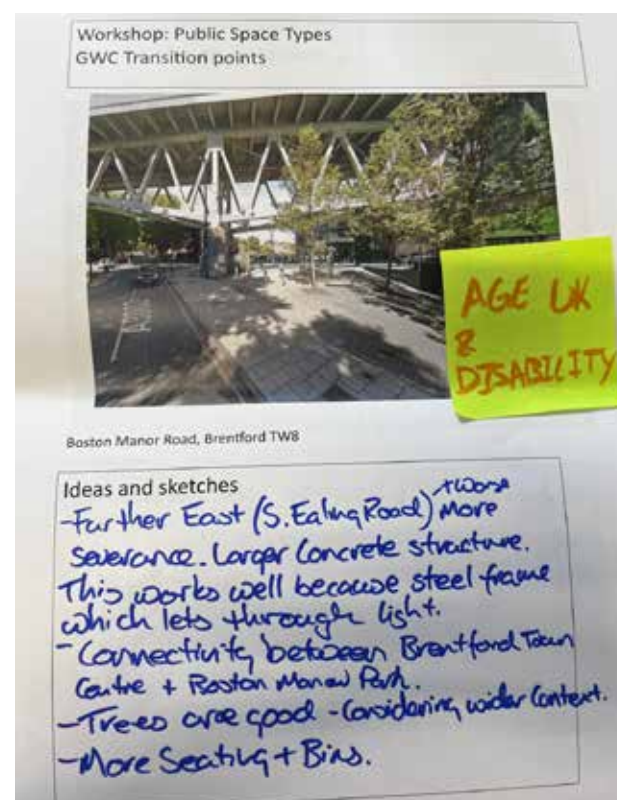 Workshop: Public Space Types
GWC Transition points
AGE UK
&
DISABILITY
Boston Manor Road, Brentford TW8
Ideas and sketches
+Worse
-Further East (S. Ealing Road) More
severance. Larger Concrete structure.
This works well because steel frame
which lets through light.
- Connectivity between Brentford Town
Centre + Boston Manor Park.
-Trees are good - Considering wider Context.
-More Seating + Bins.